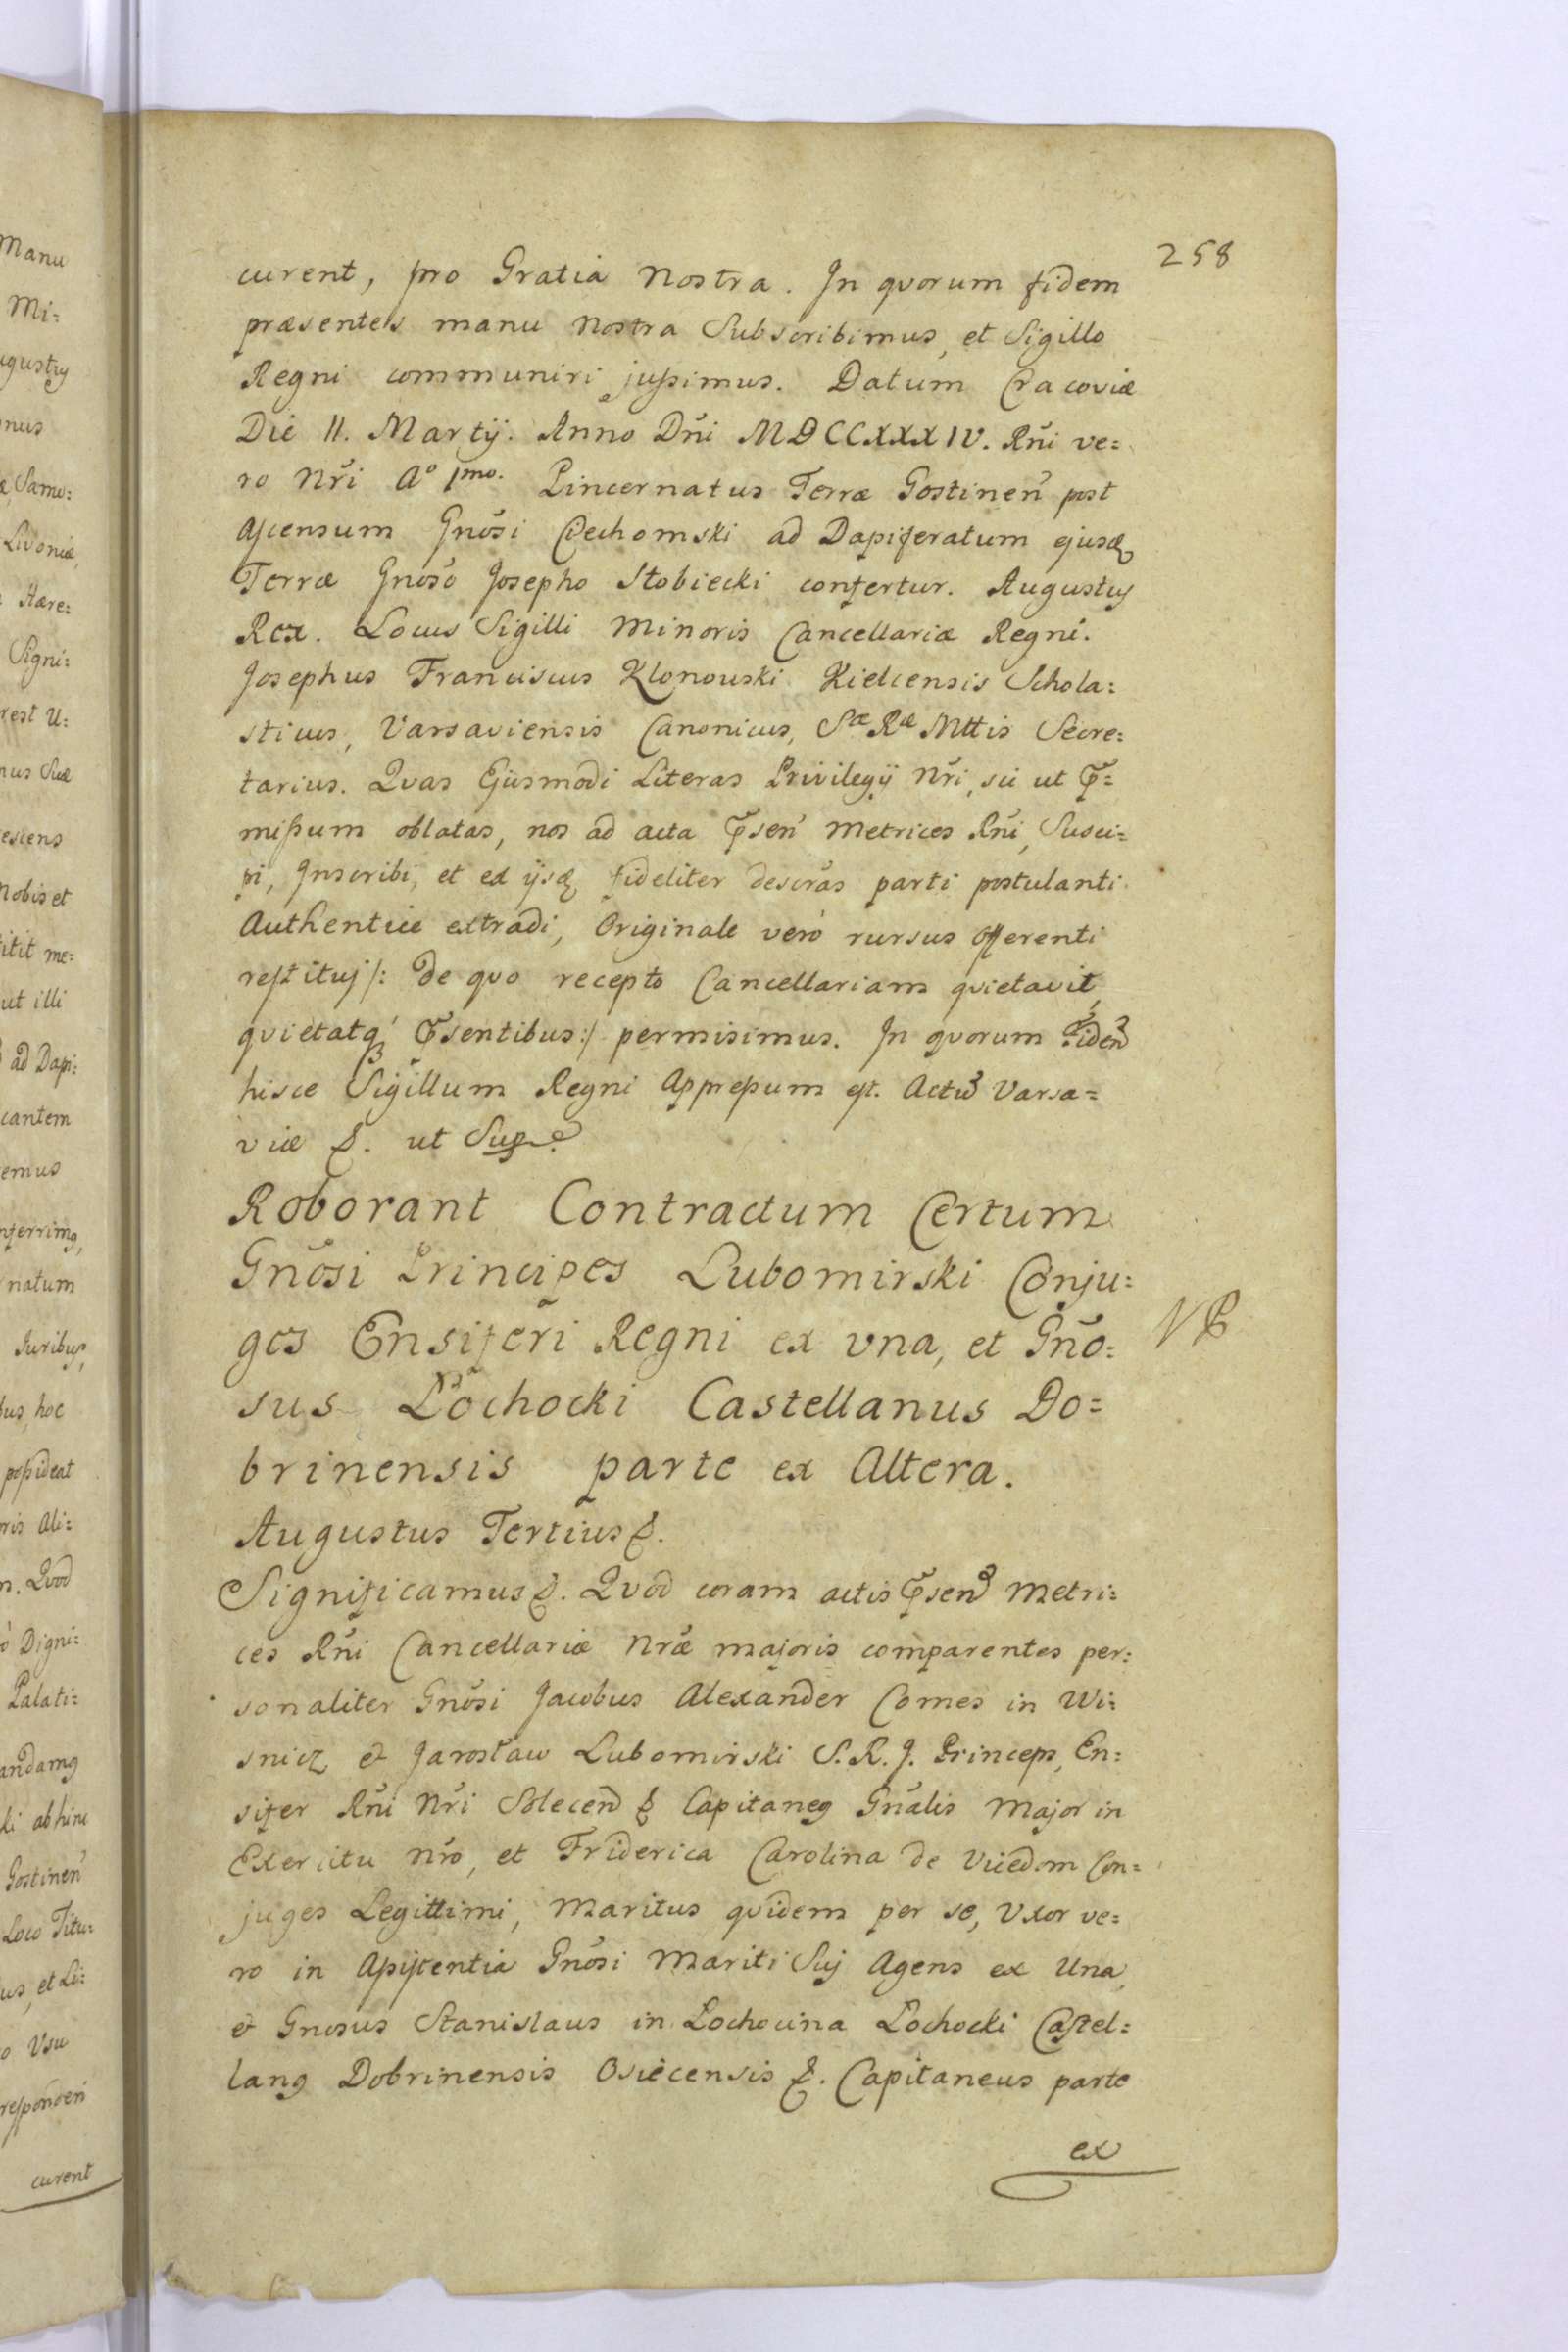 258
curent, pro Gratia Nostra. In qvorum fidem
præsentes manu Nostra Subscribimus, et Sigillo
Regni communiri jussimus. Datum Cracoviæ
Die 11. Martij. Anno Dñi MDCCXXXIV. Rñi ve=
ro Nr̃i Aº 1mo. Pincernatus Terræ Gostinen̄ post
Ascensum Gnõsi Ciechomski ad Dapiferatum ejusdꝫ
Terræ Gnõso Josepho Stobiecki confertur. Augustus
Rex. Locus Sigilli Minoris Cancellariæ Regni.
Josephus Franciscus Klonowski Kielcensis Schola=
sticus, Varsaviensis Canonicus, Sæ Ræ Mttis Secre=
tarius. Qvas Ejusmodi Literas Privilegij Nr̃i, sic ut P̃=
missum oblatas, nos ad acta P̃sen̄ Metrices Rñi, Susci=
pi, Inscribi, et ex ijsdꝫ fideliter descr̃as parti postulanti
Authentice extradi, Originale verò rursus Offerenti
restituj /: de qvo recepto Cancellariam qvietavit,
qvietatqꝫ P̃sentibus :/ permisimus. In qvorum Fidem̃
hisce Sigillum Regni Appressum est. Actũ Varsa=
viæ &. ut Supra.
Roborant Contractum Certum
Gnõsi Principes Lubomirski Conju=
ges Ensiferi Regni ex vna, et Gño=
sus Łochocki Castellanus Do=
brinensis parte ex Altera.
NB
Augustus Tertius &.
Significamus &. Qvod coram actis P̃sen̄ Metri=
ces Rñi Cancellariæ Nræ̃ majoris comparentes per=
sonaliter Gnõsi Jacobus Alexander Comes in Wi=
snicz & Jarosław Lubomirski S. R. J. Princeps, En=
sifer Rñi Nr̃i Solecen̄ & Capitaneg Gñalis Major in
Exercitu Nr̃o, et Friderica Carolina de Viiedom Con=
juges Legittimi, Maritus qvidem per se, Vxor ve=
ro in Assistentia Gnõsi Mariti Suj Agens ex Una,
& Gnosus Stanislaus in Łochocina Łochocki Castel=
lang Dobrinensis Osiecensis &. Capitaneus parte
ex